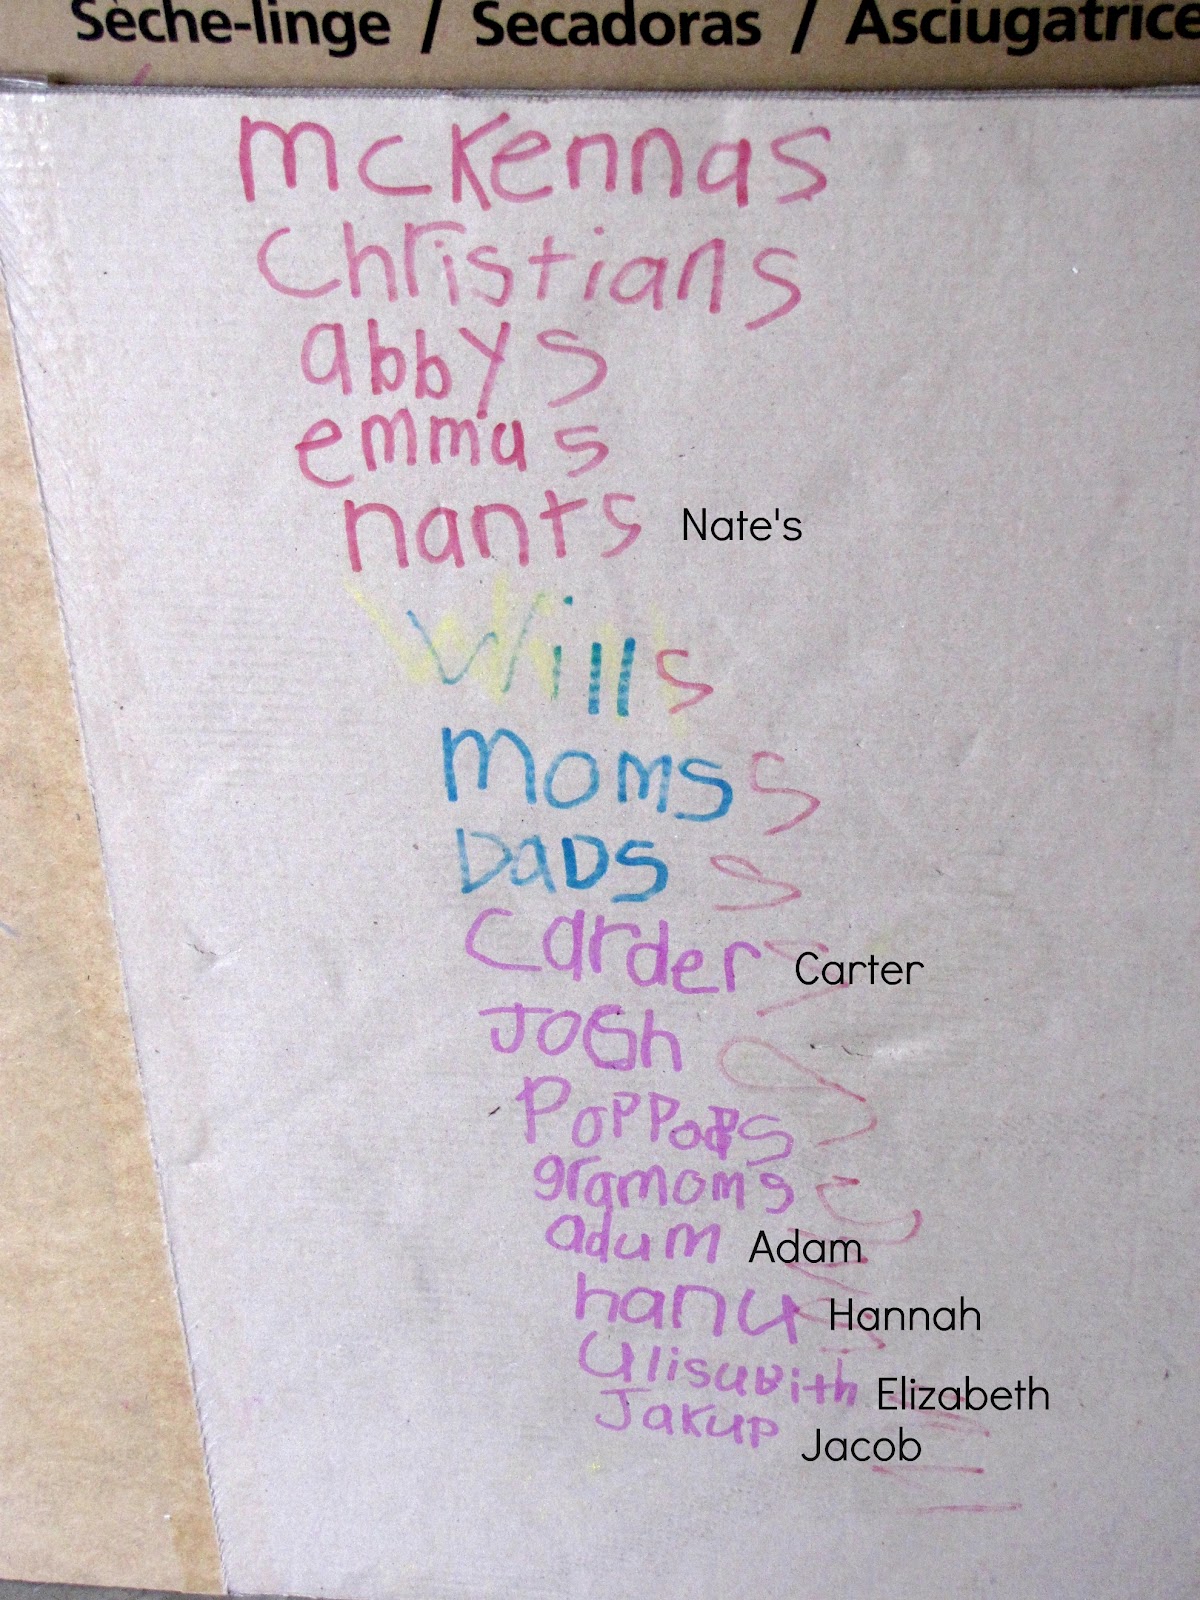 Sèche-linge / Secadoras / Asciugatrice
mcKennas
Christians
abbys
emmas
nants Nate's
Wills
Moms s
DaDS s
Carder Carter
JOSh
PoPPops
gramoms
adum Adam
hanu Hannah
Ulisubith Elizabeth
Jakup Jacob